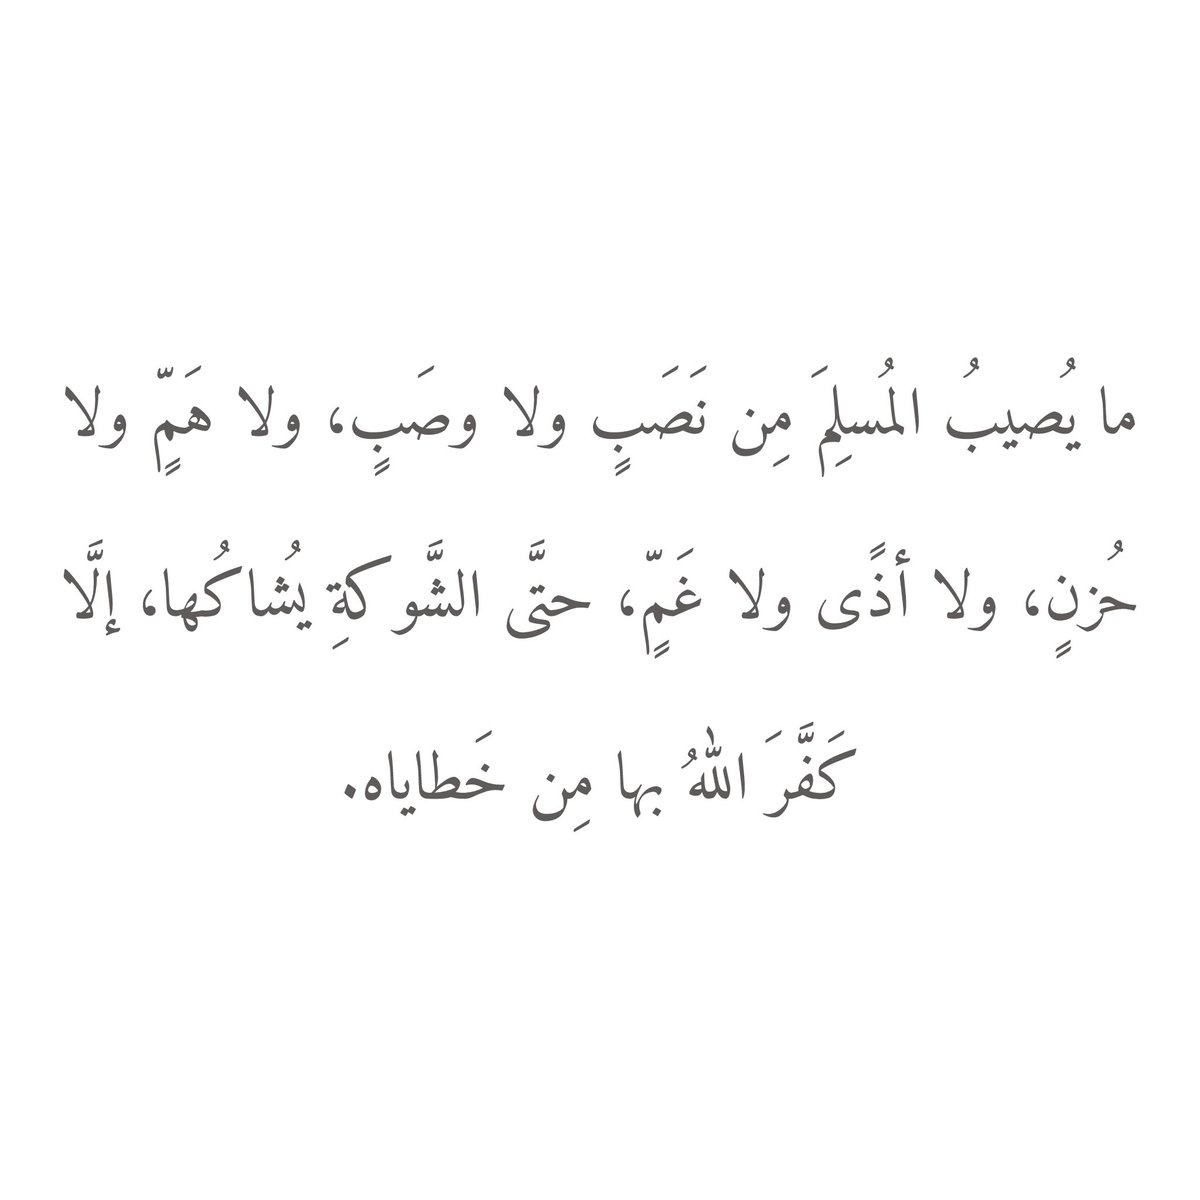 ما يُصيبُ المُسلِمَ مِن نَصَبٍ ولا وصَبٍ، ولا هَمٍّ ولا
حُزنٍ، ولا أذًى ولا غَمٍّ، حتَّى الشَّوكةِ يُشاكُها، إلَّا
كَفَّرَ اللهُ بها مِن خَطاياه.